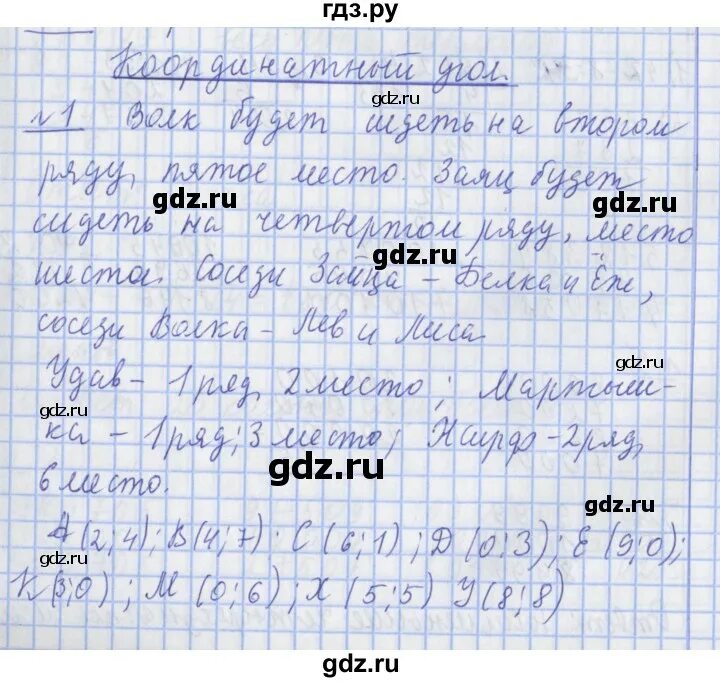 гдз.ру
Координатный угол.
gdz.ru
№1 Волк будет сидеть на втором
ряду, пятое место. Заяц будет
gdz.ru gdz.ru
сидеть на четвертом ряду, место
gdz.ru
шестое. Соседи Зайца – Белка и Ёж,
соседи Волка – Лев и Лиса
gdz.ru
Удав – 1 ряд, 2 место; Мартыш-
gdz.ru
ка – 1 ряд; 3 место; Жираф – 2 ряд,
gdz.ru
6 место.
gdz.ru
А (2; 4); В (4; 7); С (6; 1); D (0; 3); Е (9; 0);
gdz.ru
К (3; 0); М (0; 6); Х (5; 5) У (8; 8)
gdz.ru
gdz.ru